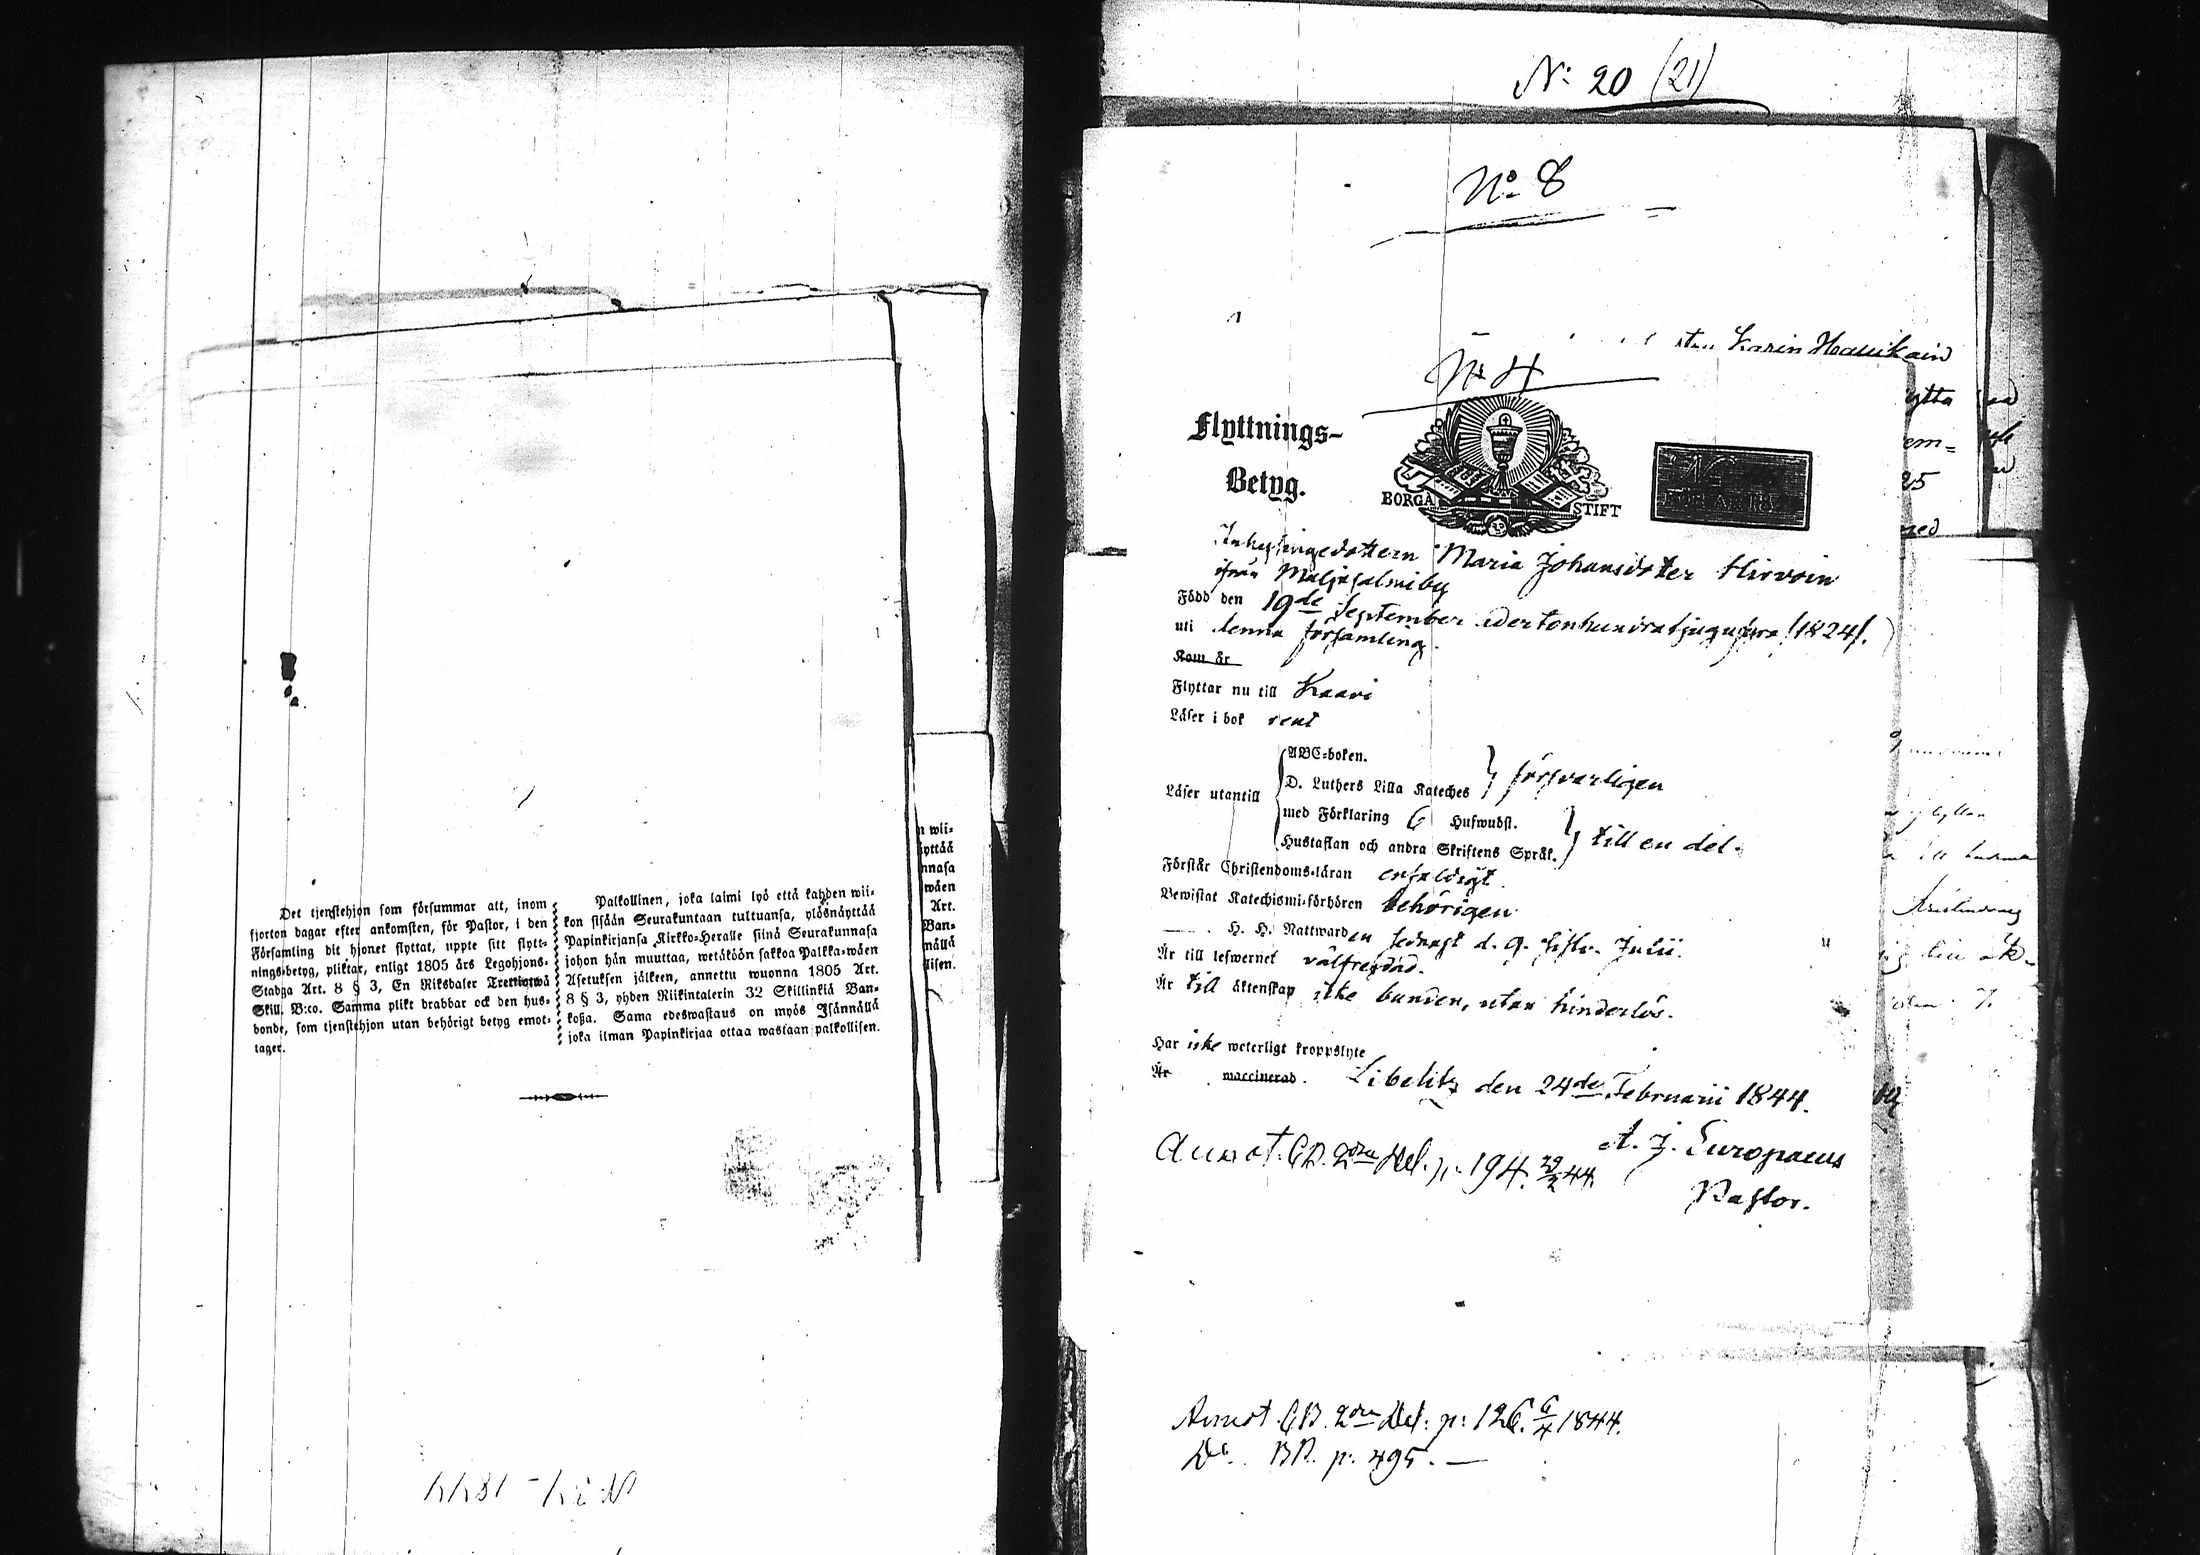 Det tjenstehjon som försummar att, inom
fjorton dagar efter ankomsten, för Pastor, i den
Församling dit hjonet flyttat, uppte sitt flytt-
nings-betyg, pliktar, enligt 1805 års Legohjons-
Stadga Art. 8 § 3, En Riksdaler Trettiotwå
Skill. B:co. Samma plikt drabbar ock den hus-
bonde, som tjenstehjon utan behörigt betyg emot-
tager.
Palkollinen, joka laimi lyö että kahden wii-
kon sisään Seurakuntaan tultuansa, ylösnäyttää
Papinkirjansa Kirkko-Heralle siinä Seurakunnasa
johon hän muuttaa, wetäköön sakkoa Palkka-wäen
Asetuksen jälkeen, annettu wuonna 1805 Art.
8 § 3, yhden Riikintalerin 32 Skillinkiä Ban-
koßa. Sama edeswastaus on myös Isännällä
joka ilman Papinkirjaa ottaa wastaan palkollisen.
n wii-
yttää
nnasa
wäen
Art.
Ban-
nällä
llisen.
N:o 4 - 1844
N: 20 (21)
No 8
Karin
ytta
em=
25
med
No 4
Flyttnings-
Betyg.
BORGÅ STIFT
Inhysingedottern Maria Johansdotter Hirvoin
ifrån Maljasalmi by
Född den 19de September adertonhundratjugufyra /1824/.
uti denna församling.
Kom år
Flyttar nu till Kaavi
Läser i bok rent
Läser utantill
ABC-boken.
D. Luthers Lilla Kateches } försvarligen
med Förklaring 6 Hufwudst.
Hustaflan och andra Skriftens Språk. } till en del.
Förstår Christendoms-läran enfaldigt
Bewistat Katechismi-förhören behörigen
H. H. Nattwarden sednast d. 9. sistl. Julii.
Är till lefwernet välfrejdad.
Är till äktenskap icke bunden, utan hinderlös.
Har icke weterligt kroppslyte
Är waccinerad. Libelitz den 24de Februarii 1844.
A. J. Europaeus
Pastor.
Annot. C.B. 2dra Del. p. 194. 29/2 44.
Annot. C.B. 2dra Del: p: 126. 6/4 1844.
Do. B.B. p. 495. —